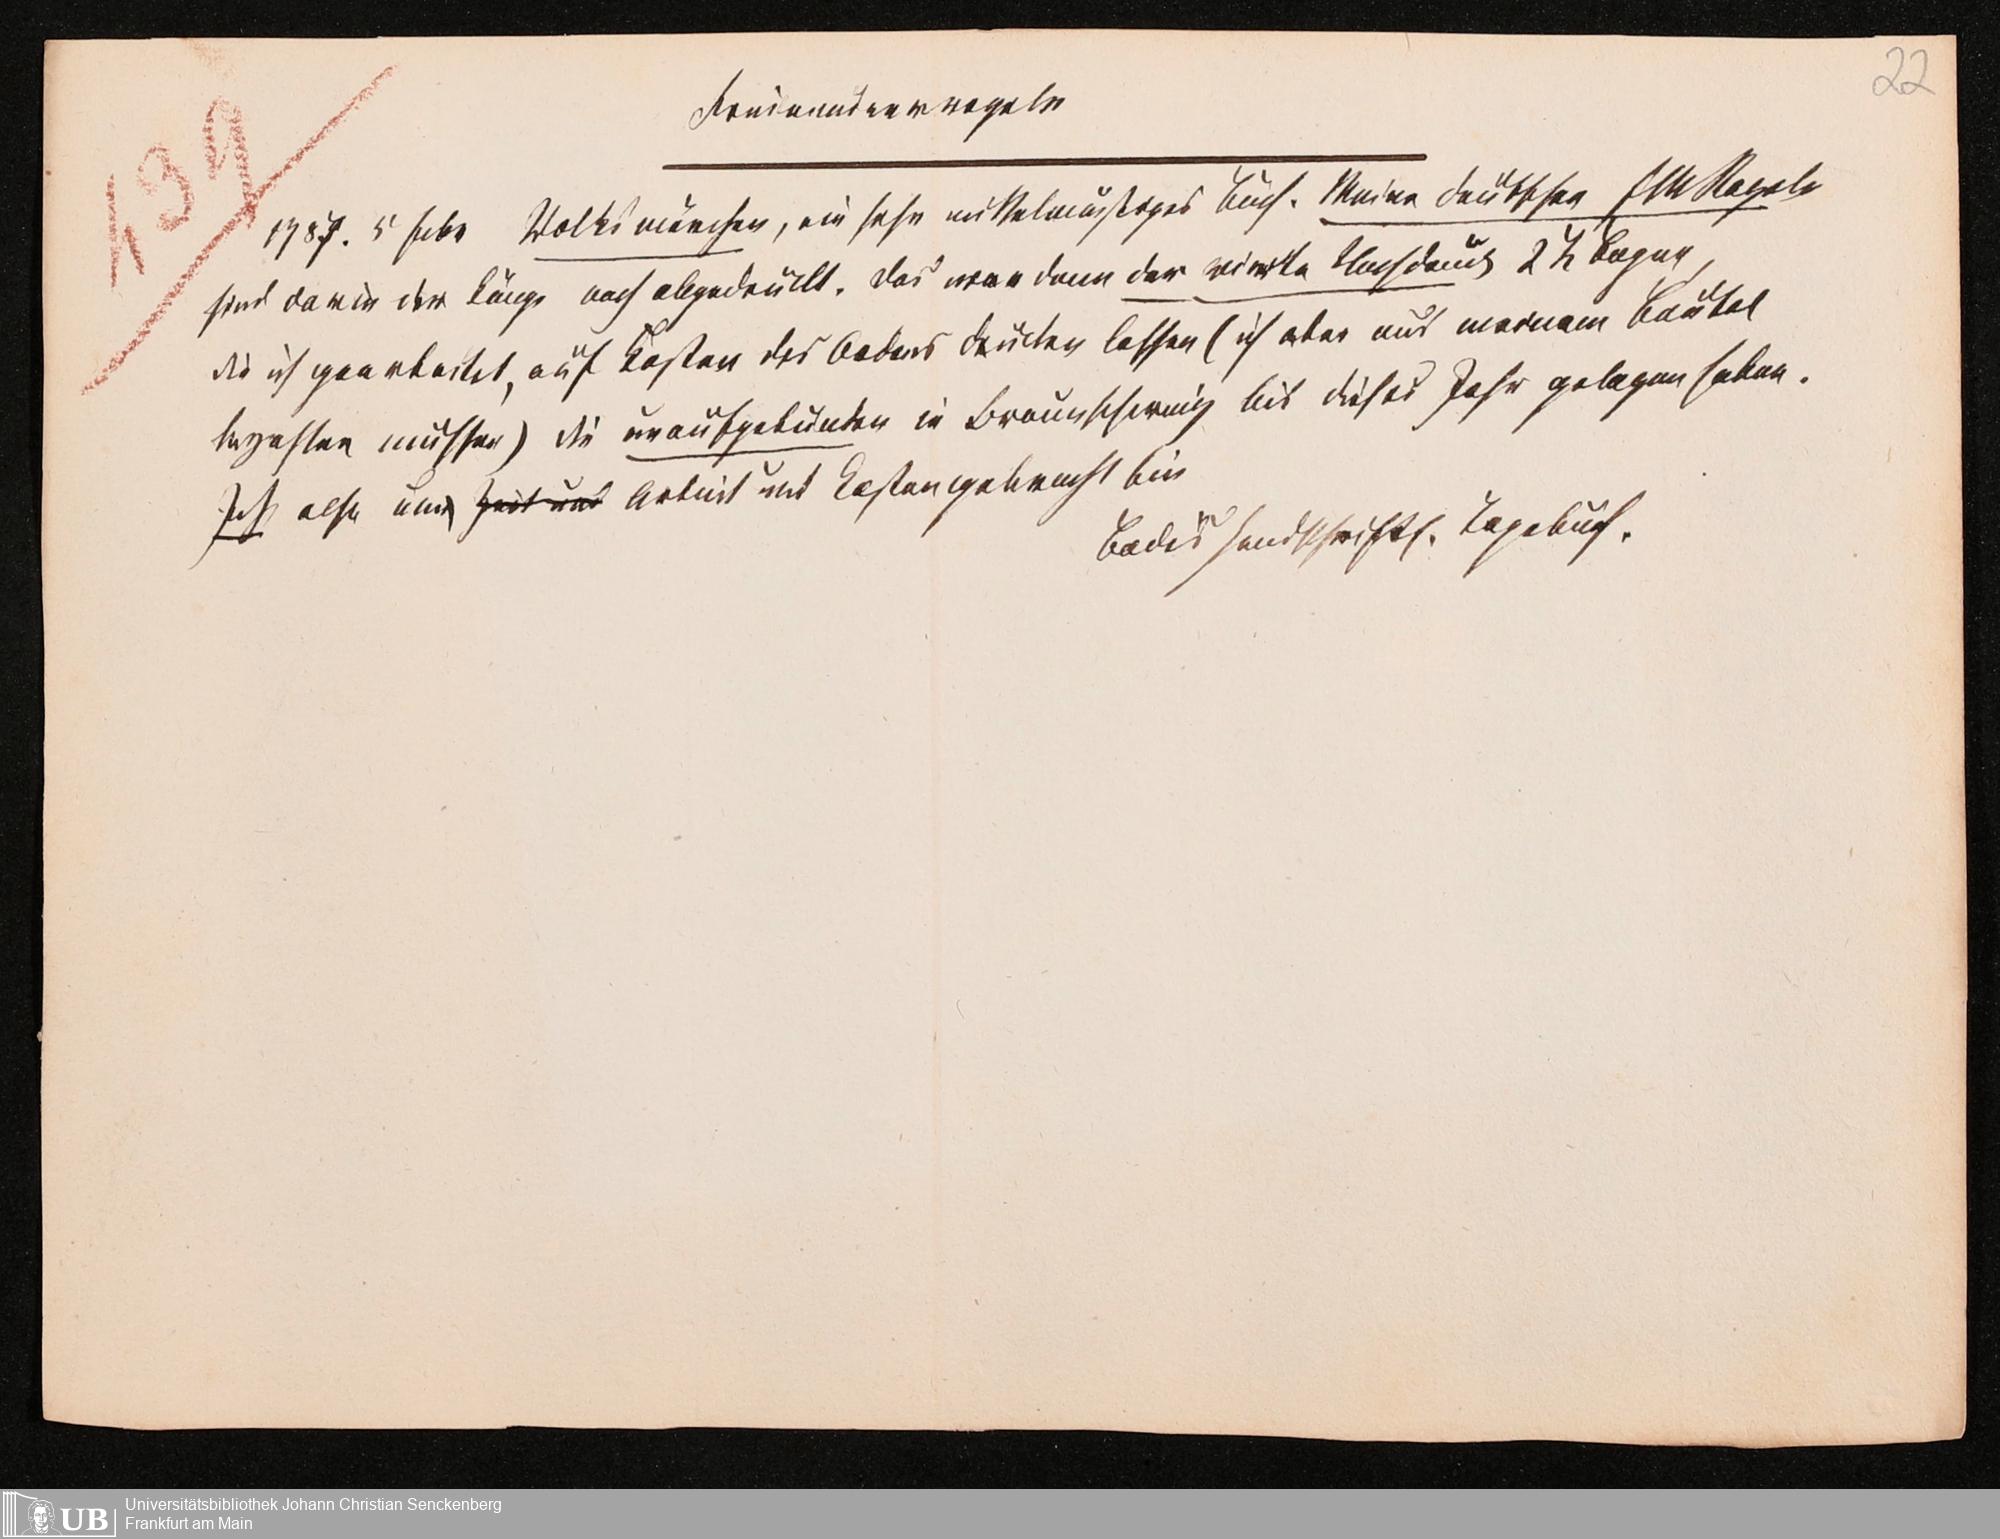 22
439
Freimaurerregeln
1787. 5 Febr Volksmärchen, ein sehr mittelmäßiges Buch. Meine deutschen FM Regeln
sind darin der Länge nach abgedruckt. Das wäre dann der vierte Nachdruck 2 ½ Bogen,
die ich gearbeitet, auf Kosten des Ordens drucken lassen (ich aber aus meinem Beutel
bezahlen mussen) die unaufgebunden in Braunschweig bis dieses Jahr gelegen haben.
Ich also um Zeit und Arbeit und Kosten gebracht bin
Bodes handschriftl. Tagebuch.
UB
Universitätsbibliothek Johann Christian Senckenberg
Frankfurt am Main